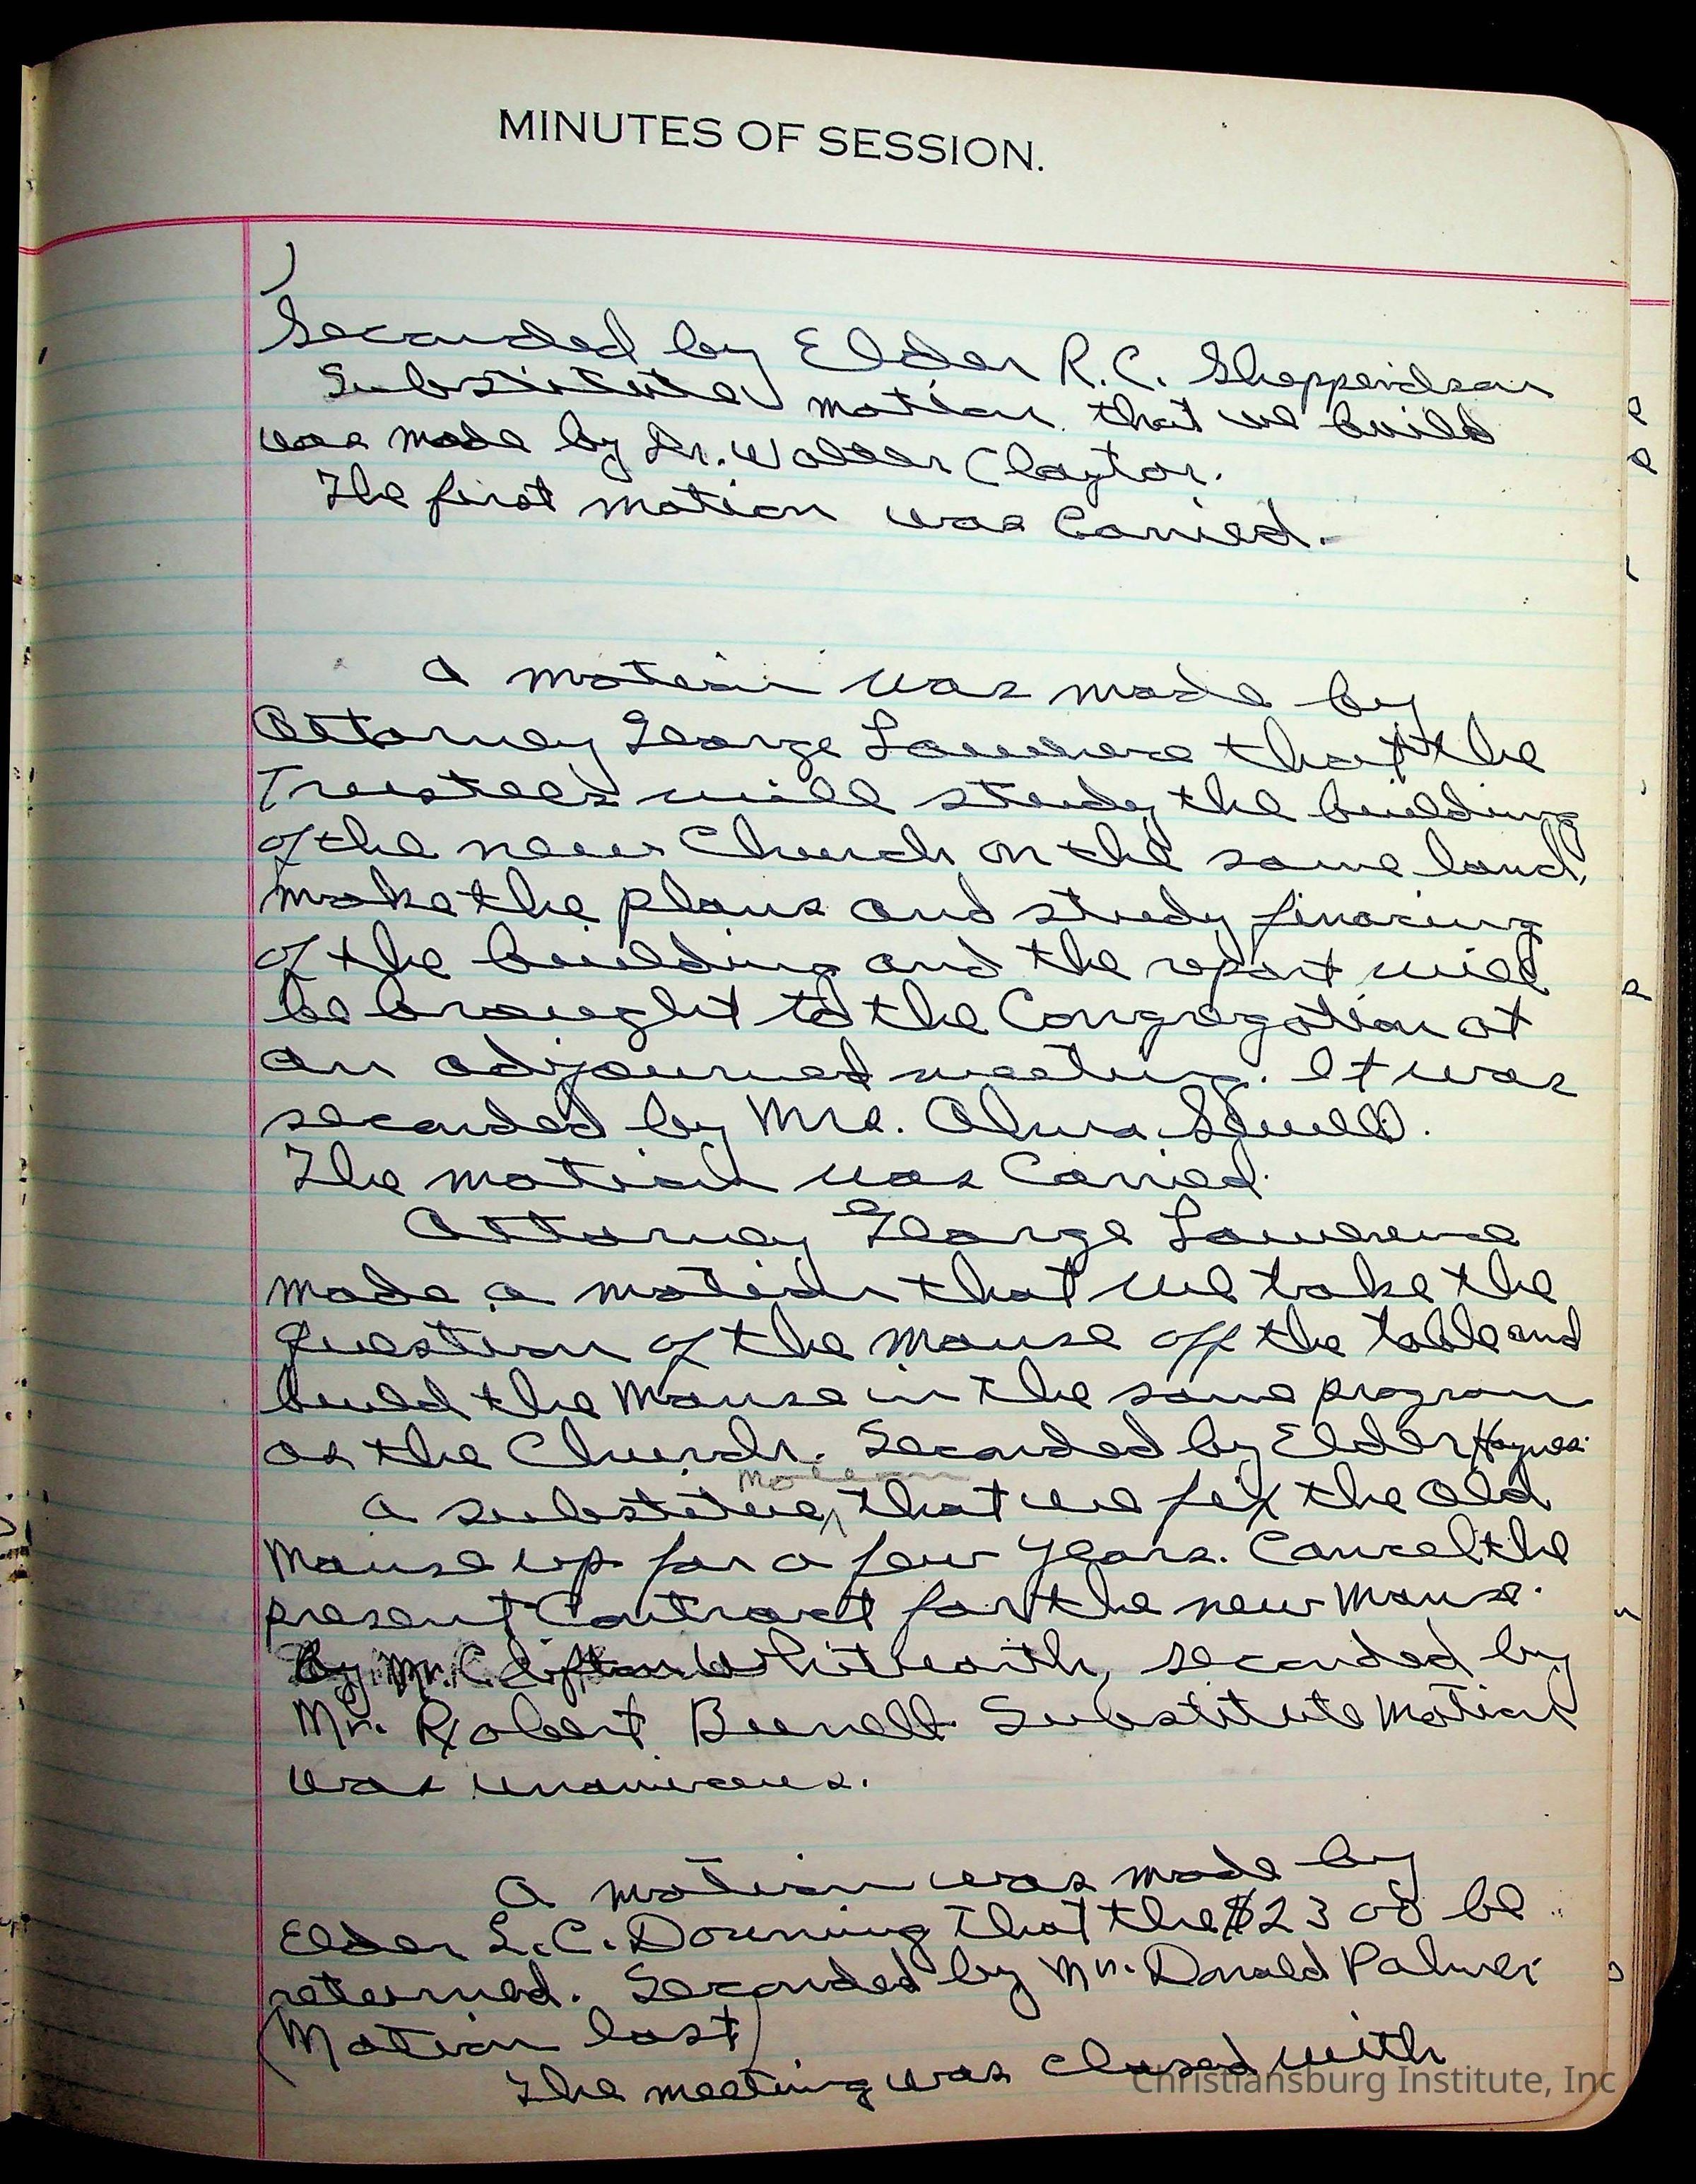 MINUTES OF SESSION.
)
Seconded by Elder R.C. Shepperdson
Substitute motion that we build
was made by Dr. Walter Claytor.
The first motion was carried.
A motion was made by
Attorney George Lawrence that the
Trustees will study the building
of the new Church on the same land,
make the plans and study financing
of the building and the report will
be brought to the Congregation at
an adjourned meeting. It was
seconded by Mrs. Alma
The motion was carried.
Attorney George Lawrence
made a motion that we take the
question of the manse off the table and
build the Manse in the same program
as the Church. Seconded by Elder Haynes.
motion
A substitue, that we fix the old
Manse up for a few years. Cancel the
present Contract for the new Manse.
By Mr. Clifton Whitworth, seconded by
Mr. Robert Burrell Substitute Motion
was
A motion was made by
Elder L.C. Downing that the $23 00 be
returned. Seconded by Mr. Donald Palmer
(Motion lost)
The meeting was closed with
Christiansburg Institute, Inc